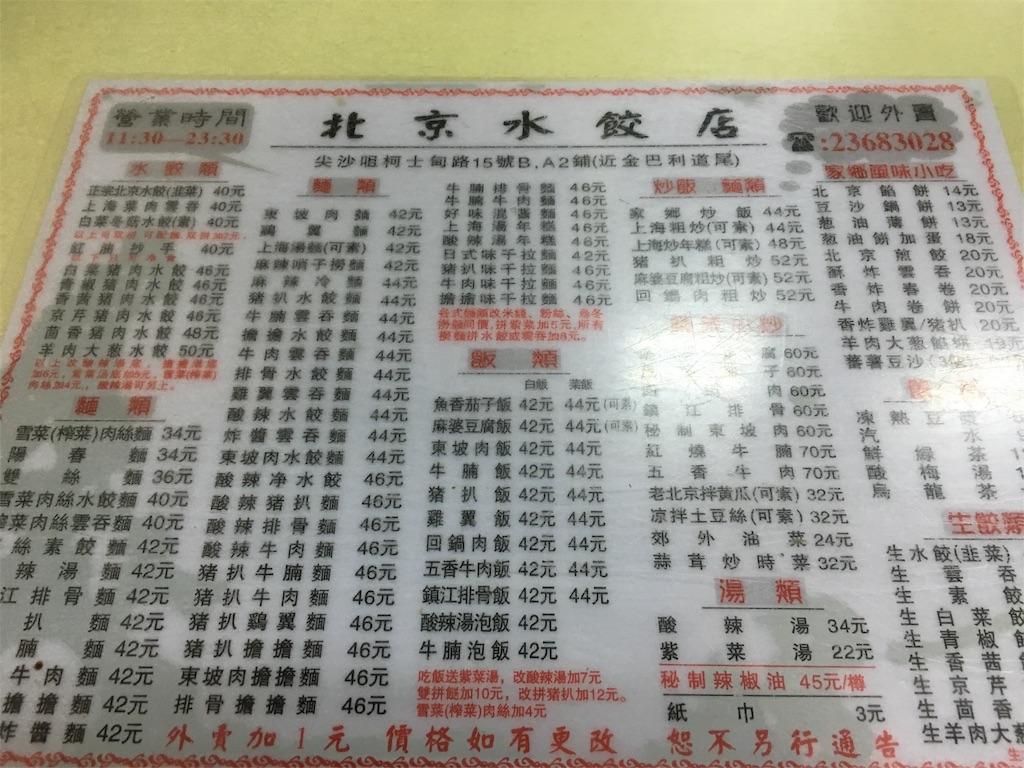 營業時間
11:30—23:30
北京水餃店
歡迎外賣
☎:23683028
尖沙咀柯士甸路15號B,A2鋪(近金巴利道尾)
水餃類
正宗北京水餃(韭菜) 40元
上海菜肉雲吞 40元
白菜冬菇水餃(素) 40元
紅油抄手 40元
白菜豬肉水餃 46元
青椒豬肉水餃 46元
香茜豬肉水餃 46元
京芹豬肉水餃 46元
茴香豬肉水餃 48元
羊肉大葱水餃 50元
麵類
雪菜(榨菜)肉絲麵 34元
陽春麵 34元
雙絲 36元
雪菜肉絲水餃麵 40元
菜肉絲雲吞麵 40元
絲素餃麵 42元
辣湯麵 42元
江排骨麵 42元
扒麵 42元
腩麵 42元
牛肉麵 42元
擔擔麵 42元
炸醬麵 42元
麵類
東坡肉麵 42元
鷄翼麵 42元
上海湯麵(可素) 42元
麻辣哨子撈麵 42元
麻辣冷麵 44元
豬扒水餃麵 44元
牛腩雲吞麵 44元
擔擔水餃麵 44元
牛肉雲吞麵 44元
排骨水餃麵 44元
雞翼雲吞麵 44元
酸辣水餃麵 44元
炸醬雲吞麵 44元
東坡肉水餃麵 44元
酸辣净水餃 46元
酸辣豬扒麵 46元
酸辣排骨麵 46元
酸辣牛肉麵 46元
豬扒牛腩麵 46元
豬扒牛肉麵 46元
豬扒鷄翼麵 46元
豬扒擔擔麵 46元
東坡肉擔擔麵 46元
排骨擔擔麵 46元
牛腩排骨麵 46元
牛腩牛肉麵 46元
好味混醬麵 46元
上海湯年糕 46元
酸辣湯年糕 46元
日式味千拉麵 42元
豬扒味千拉麵 46元
牛肉味千拉麵 46元
擔擔味千拉麵 46元
飯類
白飯 菜飯
魚香茄子飯 42元 44元(可素)
麻婆豆腐飯 42元 44元(可素)
東坡肉飯 42元 44元
牛腩飯 42元 44元
豬扒飯 42元 44元
雞翼飯 42元 44元
回鍋肉飯 42元 44元
五香牛肉飯 42元 44元
鎮江排骨飯 42元 44元
酸辣湯泡飯 42元
牛腩泡飯 42元
吃飯送紫菜湯，改酸辣湯加7元
雙拼餸加10元，改拼豬扒加12元。
雪菜(榨菜)肉絲加4元
炒飯麵類
家鄉炒飯 44元
上海粗炒(可素) 44元
上海炒年糕(可素) 48元
豬扒粗炒 52元
麻婆豆腐粗炒(可素) 52元
回鍋肉粗炒 52元
腐 60元
子 60元
肉 60元
鎮江排骨 60元
秘制東坡肉 60元
紅燒牛腩 70元
五香牛肉 70元
老北京拌黄瓜(可素) 32元
凉拌土豆絲(可素) 32元
郊外油菜 24元
蒜茸炒時菜 32元
湯類
酸辣湯 34元
紫菜湯 22元
秘制辣椒油 45元/樽
紙巾 3元
家鄉風味小吃
北京餡餅 14元
豆沙鍋餅 13元
葱油薄餅 13元
葱油餅加蛋 18元
北京煎餃 20元
酥炸雲吞 20元
香炸春卷 20元
牛肉卷餅 20元
香炸雞翼/豬扒 20元
羊肉大葱餡餅
蕃薯豆沙
凍熱豆
汽水
鮮綠茶
酸梅湯
烏龍茶
生餃類
生水餃(韭菜)
生雲吞
生素餃
生白菜餃
生青椒
生香茜
生京芹
生茴香
生羊肉大葱
外賣加1元 價格如有更改 恕不另行通告